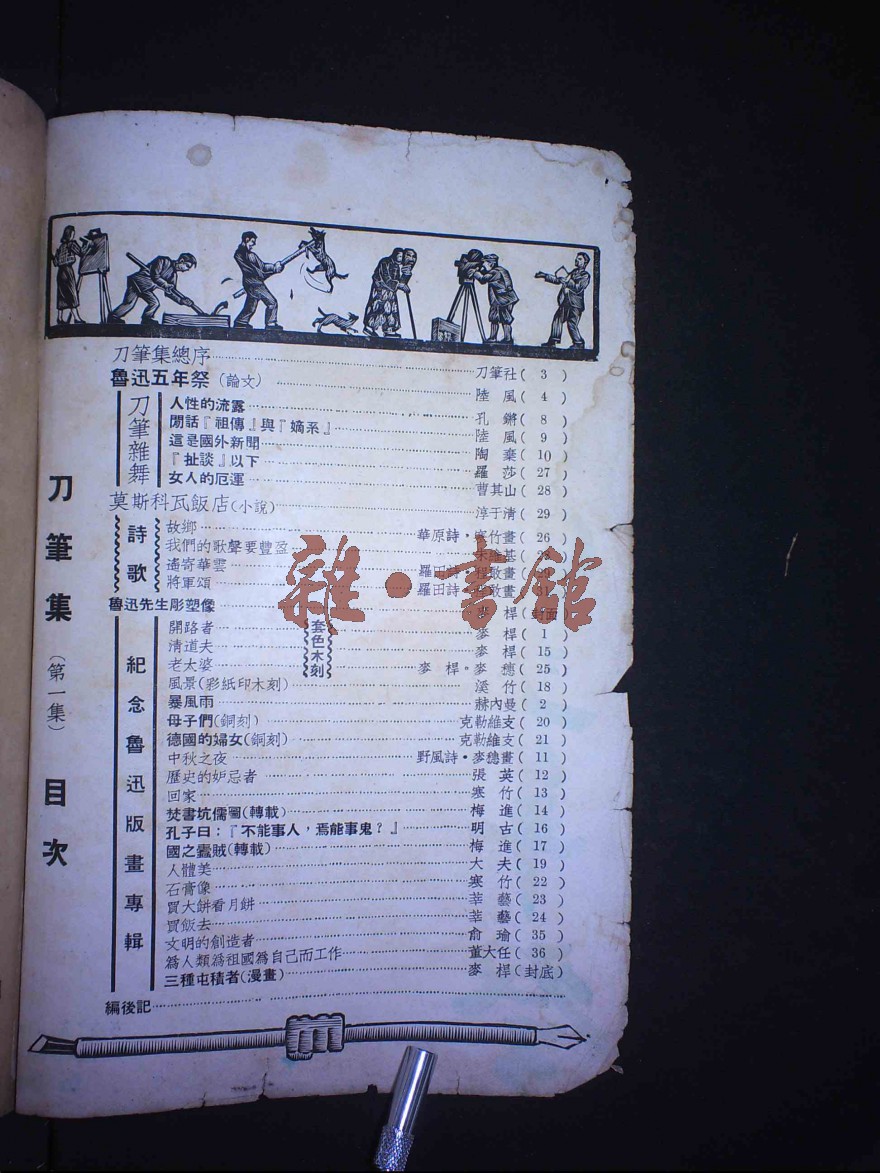 刀筆集(第一集) 目次
刀筆集總序 刀筆社( 3 )
魯迅五年祭(論文) 陸風( 4 )
刀筆雜舞
人性的流露 孔鏘( 8 )
閒話『祖傳』與『嫡系』 陸風( 9 )
這是國外新聞 陶棄( 10 )
『扯談』以下 羅莎( 27 )
女人的厄運 曹其山( 28 )
莫斯科瓦飯店(小說) 淳于清( 29 )
詩歌
故鄉 華原詩·寒竹畫( 26 )
我們的歌聲要豐盈
遙寄華雲 羅田詩
將軍頌 羅田詩
魯迅先生彫塑像 麥桿(封面)
紀念魯迅版畫專輯
套色木刻
開路者 麥桿( 1 )
清道夫 麥桿( 15 )
老太婆 麥桿·麥穗( 25 )
風景(彩紙印木刻) 溪竹( 18 )
暴風雨 赫內曼( 2 )
母子們(銅刻) 克勒維支( 20 )
德國的婦女(銅刻) 克勒維支( 21 )
中秋之夜 野風詩·麥穗畫( 11 )
歷史的妒忌者 張英( 12 )
回家 寒竹( 13 )
焚書坑儒圖(轉載) 梅進( 14 )
孔子曰:『不能事人,焉能事鬼?』 明古( 16 )
國之蠹賊(轉載) 梅進( 17 )
人體美 大夫( 19 )
石膏像 寒竹( 22 )
買大餅看月餅 莘藝( 23 )
買飯去 莘藝( 24 )
文明的創造者 俞瑜( 35 )
為人類為祖國為自己而工作 董大任( 36 )
三種屯積者(漫畫) 麥桿(封底)
編後記
雜·書館